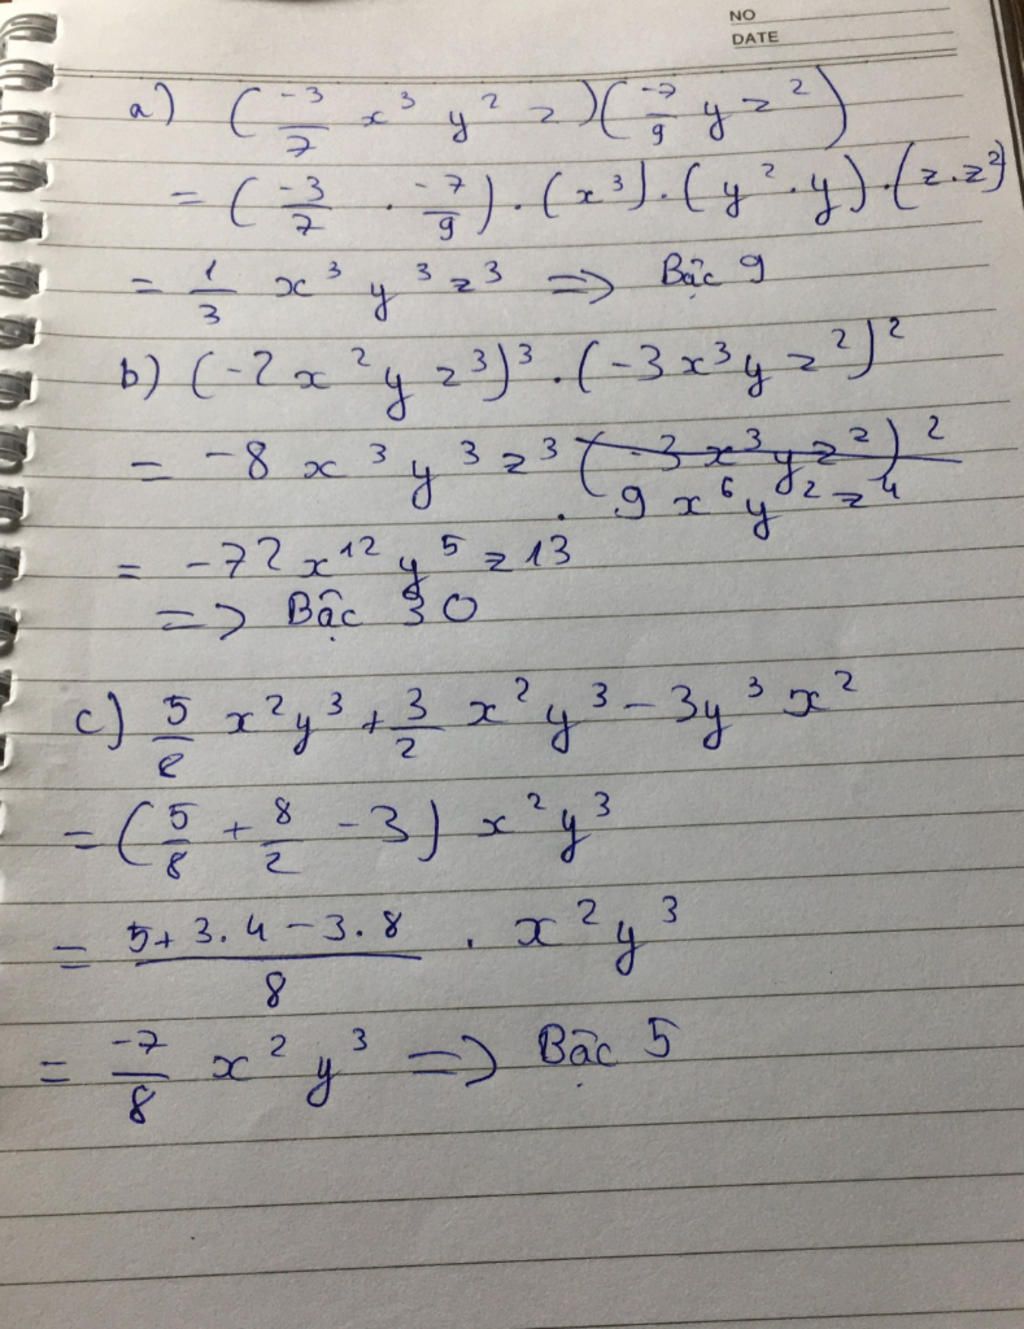 NO
DATE
a) (-3/7 x³ y² z)(-7/9 y z²)
= (-3/7 . -7/9) . (x³) . (y² . y) . (z . z²)
= 1/3 x³ y³ z³ => Bậc 9
b) (-2 x² y z³)³ . (-3 x³ y z²)²
= -8 x³ y³ z³ (-3 x³ y z²)²
. 9 x⁶ y² z⁴
= -72 x¹² y⁵ z¹³
=> Bậc 30
c) 5/8 x² y³ + 3/2 x² y³ - 3y³ x²
= (5/8 + 8/2 - 3) x² y³
= 5 + 3.4 - 3.8/8 . x² y³
= -7/8 x² y³ => Bậc 5